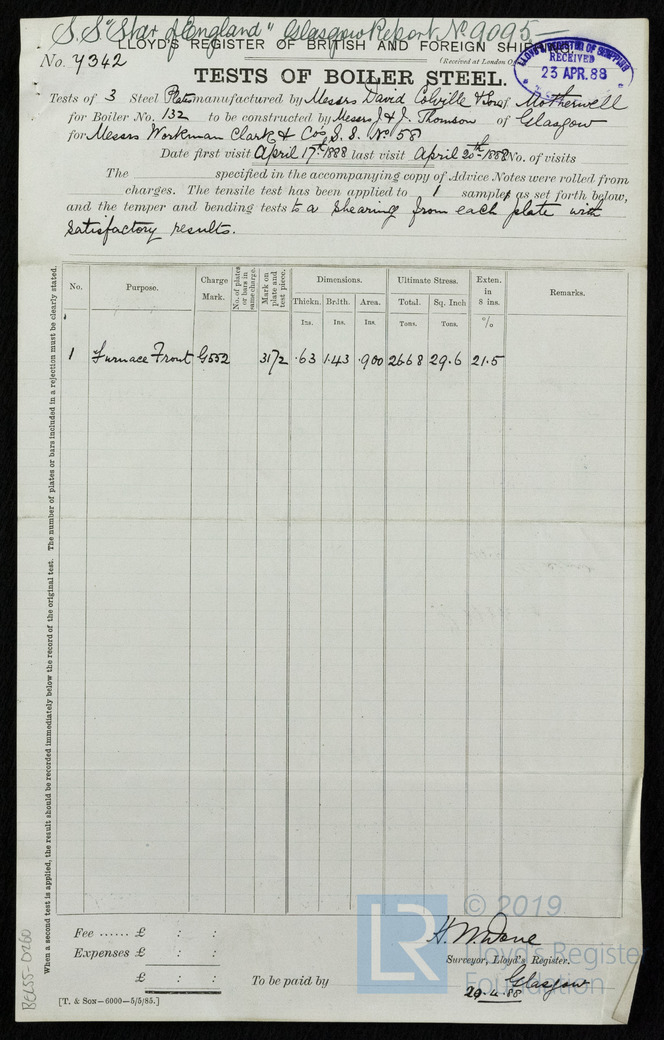 S.S. "Star of England" Glasgow Report No 9095
LLOYD'S REGISTER OF BRITISH AND FOREIGN SHIPPING.
No. 7342
(Received at London Office
LLOYD'S REGISTER OF SHIPPING
RECEIVED
23 APR.88
TESTS OF BOILER STEEL.
Tests of 3 Steel Plates manufactured by Messrs David Colville & Sons of Motherwell
for Boiler No. 132 to be constructed by Messrs J. & J. Thomson of Glasgow
for Messrs Workman Clark & Cos S.S. No 58
Date first visit April 17th 1888 last visit April 20th 1888 No. of visits
The specified in the accompanying copy of Advice Notes were rolled from
charges. The tensile test has been applied to 1 sample as set forth below,
and the temper and bending tests to a shearing from each plate with
satisfactory results.
No. Purpose. Charge Mark. No. of plates or bars in same charge. Mark on plate and test piece. Dimensions. Ultimate Stress. Exten. in 8 ins. Remarks.
Thickn. Brdth. Area. Total. Sq. Inch
Ins. Ins. Ins. Tons. Tons. %
1 Furnace Front G552 3172 .63 1.43 .900 26.68 29.6 21.5
When a second test is applied, the result should be recorded immediately below the record of the original test. The number of plates or bars included in a rejection must be clearly stated.
Fee ...... £ : :
Expenses £ : :
£ : :
To be paid by
H. W. Dove
Surveyor, Lloyd's Register.
Glasgow
20.4.88
[T. & SON—6000—5/5/85.]
BEL55-0260
LR
© 2019
Lloyd's Register
Foundation